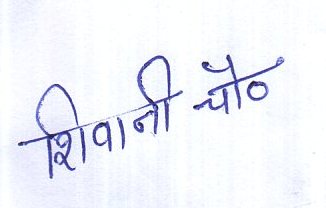 शिवानी चौ०